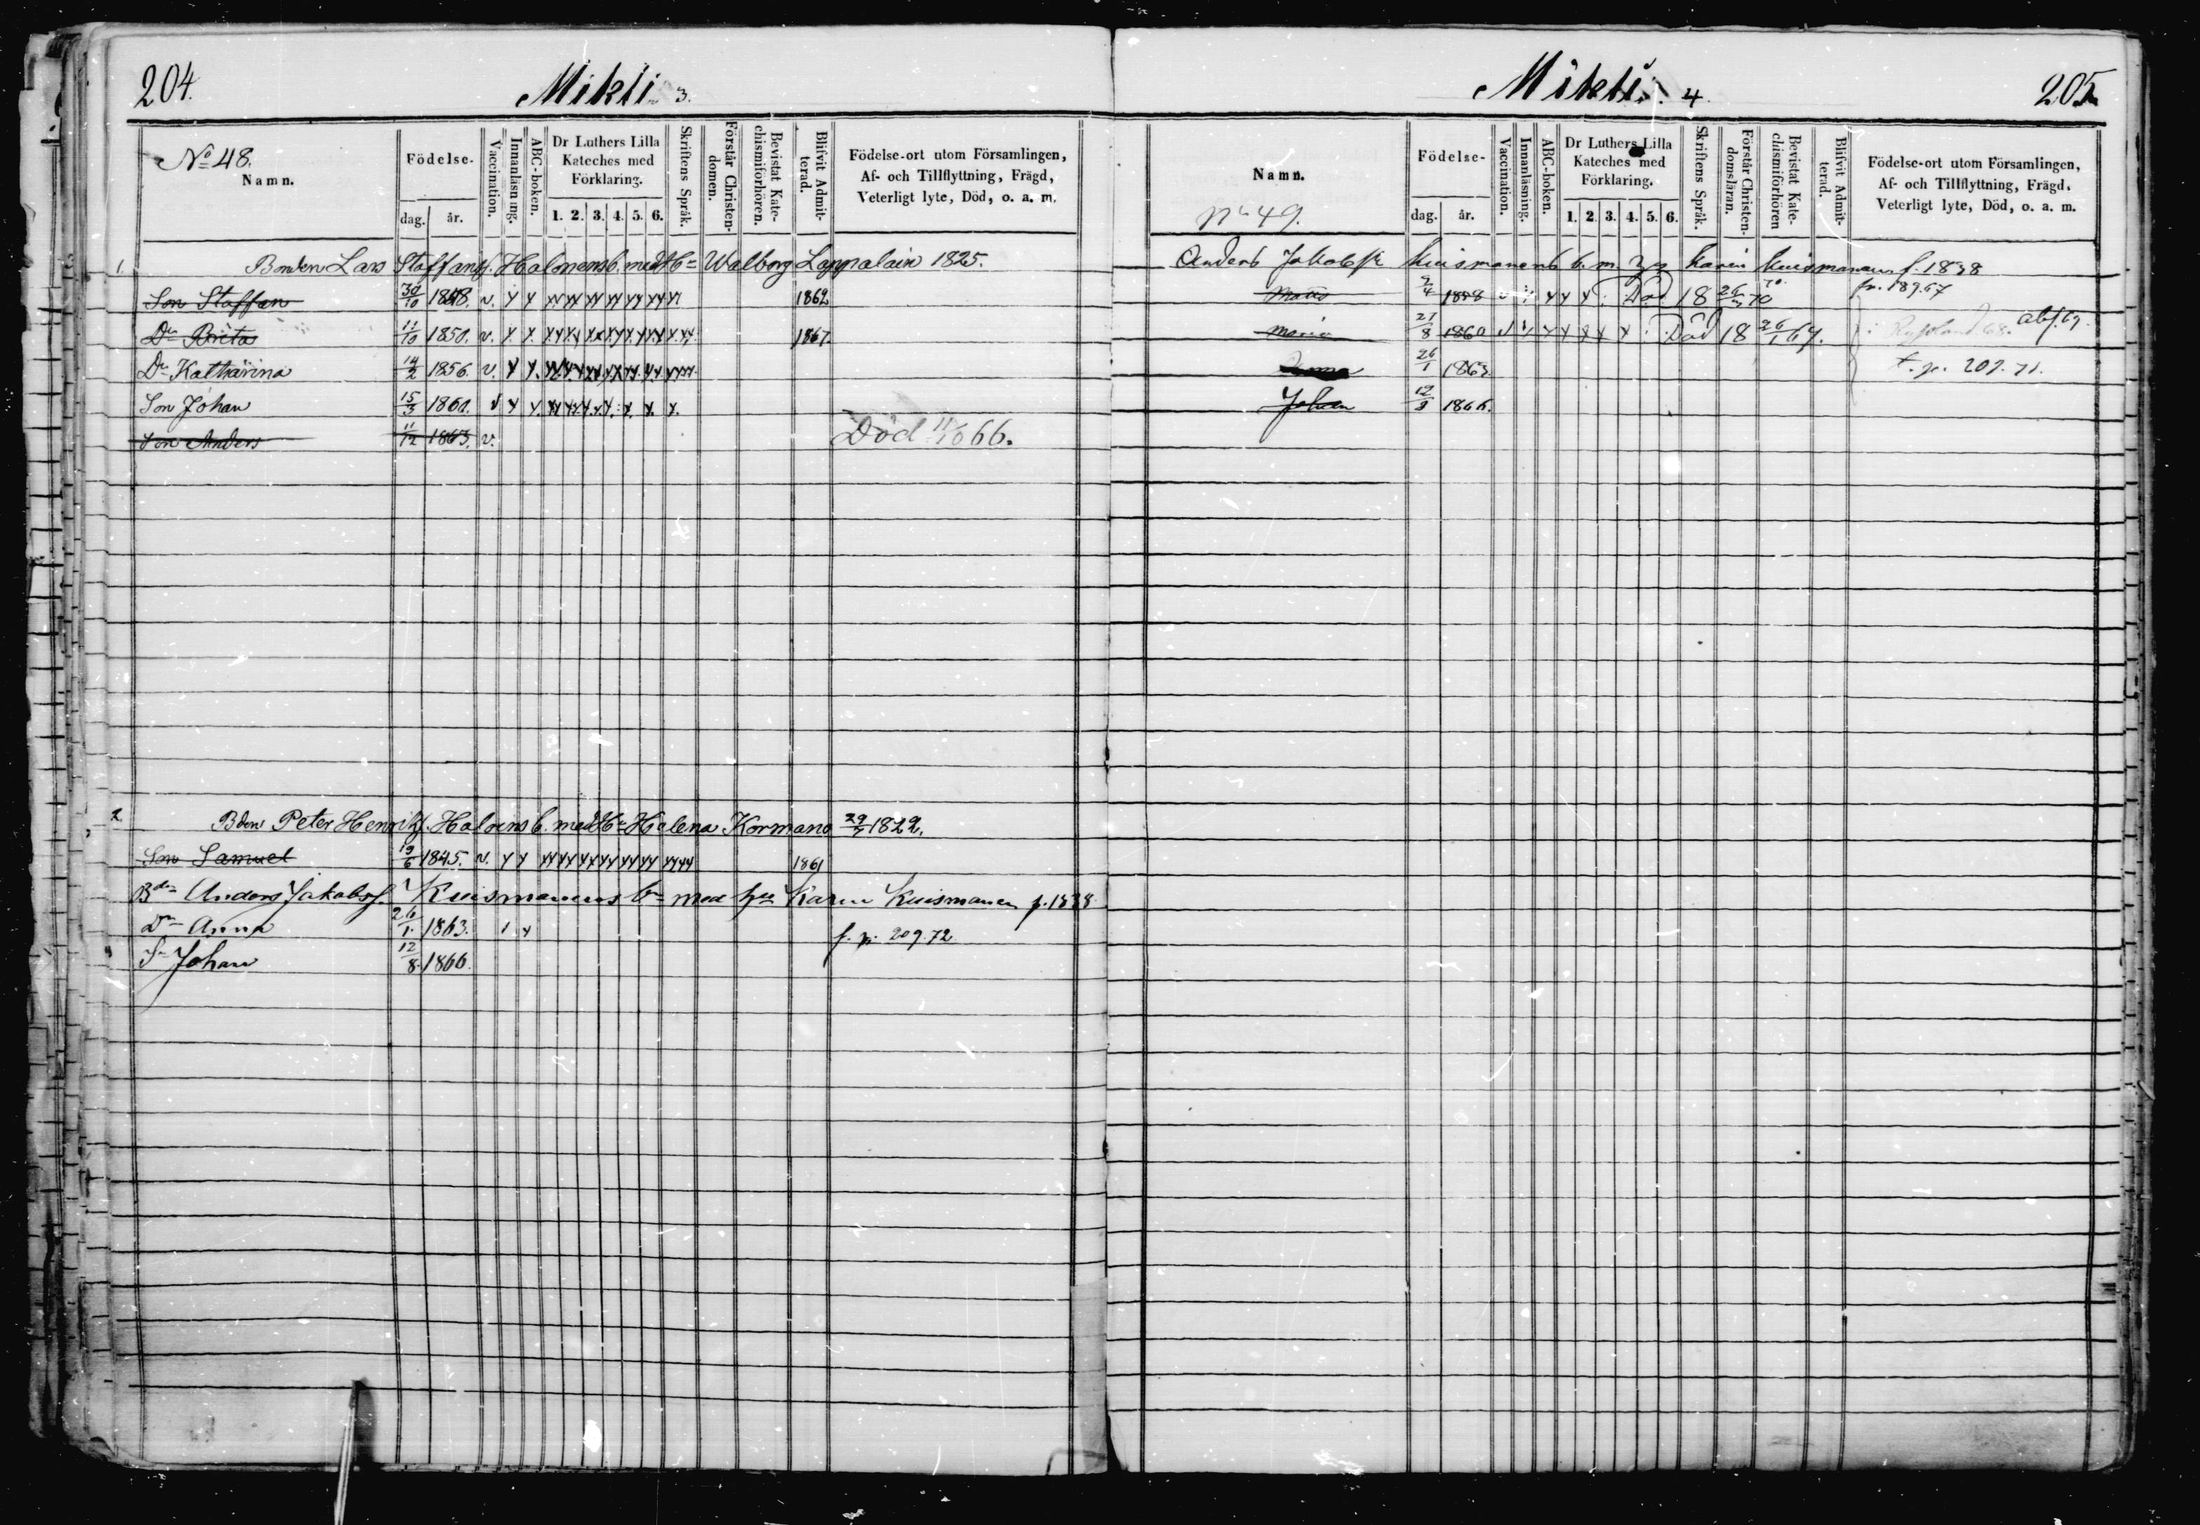 204.
Mikli 3.
No 48.
Namn.
Födelse-
dag. år.
Vaccination.
Innanläsning.
ABC-boken.
Dr Luthers Lilla Kateches med Förklaring.
1. 2. 3. 4. 5. 6.
Skriftens Språk.
Förstår Christen-domen.
Bevistat Kate-chismiförhören.
Blifvit Admit-terad.
Födelse-ort utom Församlingen,
Af- och Tillflyttning, Frägd,
Veterligt lyte, Död, o. a. m.
1. Bonden Lars Staffansf. Halonens b. med H= Walborg Leppalain 1825.
Son Staffan 30/10 1848. v. 1862
Dr Brita 11/10 1850. v. 1867
Dr Katharina 14/2 1856. v.
Son Johan 15/3 1860. v
Son Anders 11/12 1863. v. Död 11/10 66.
2. Bden Peter Henriksf. Haloens b. med H= Helena Kormano 29/ 1822.
Son Samuel 19/6 1845. v. 1861
Bdn Anders Jakobsf. Kuismanens b= med h= Karin Kuismanen f. 1838
Dr Anna 26/1. 1863. f. p. 209.72
S= Johan 12/8. 1866.
Mikli. 4.
205
Namn.
No 49.
Födelse-
dag. år.
Vaccination.
Innanläsning.
ABC-boken.
Dr Luthers Lilla Kateches med Förklaring.
1. 2. 3. 4. 5. 6.
Skriftens Språk.
Förstår Christen-domsläran.
Bevistat Kate-chismiförhören
Blifvit Admit-terad.
Födelse-ort utom Församlingen,
Af- och Tillflyttning, Frägd,
Veterligt lyte, Död, o. a. m.
Anders Jakobsf. Kuismanens b. m. Karin Kuismanen f. 1838
Matts 2/4 1858 v Död 18 70 fr. 189.67
Maria 27/8 1860 v Död 18 26/1 67. i Ryssland 68. abf. 69
Anna 26/1 1863 t. p. 209.71.
Johan 12/8 1866.